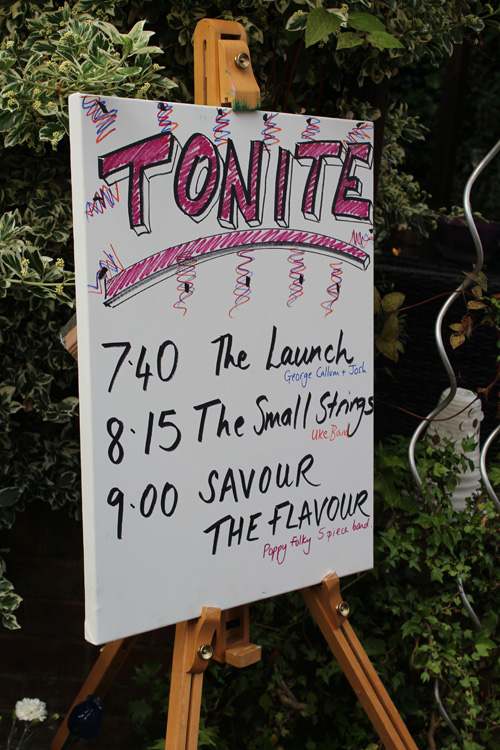 TONITE
7.40 The Launch
George Callum + Josh
8.15 The Small Strings
Uke Band
9.00 SAVOUR
THE FLAVOUR
Poppy folky 5 piece band